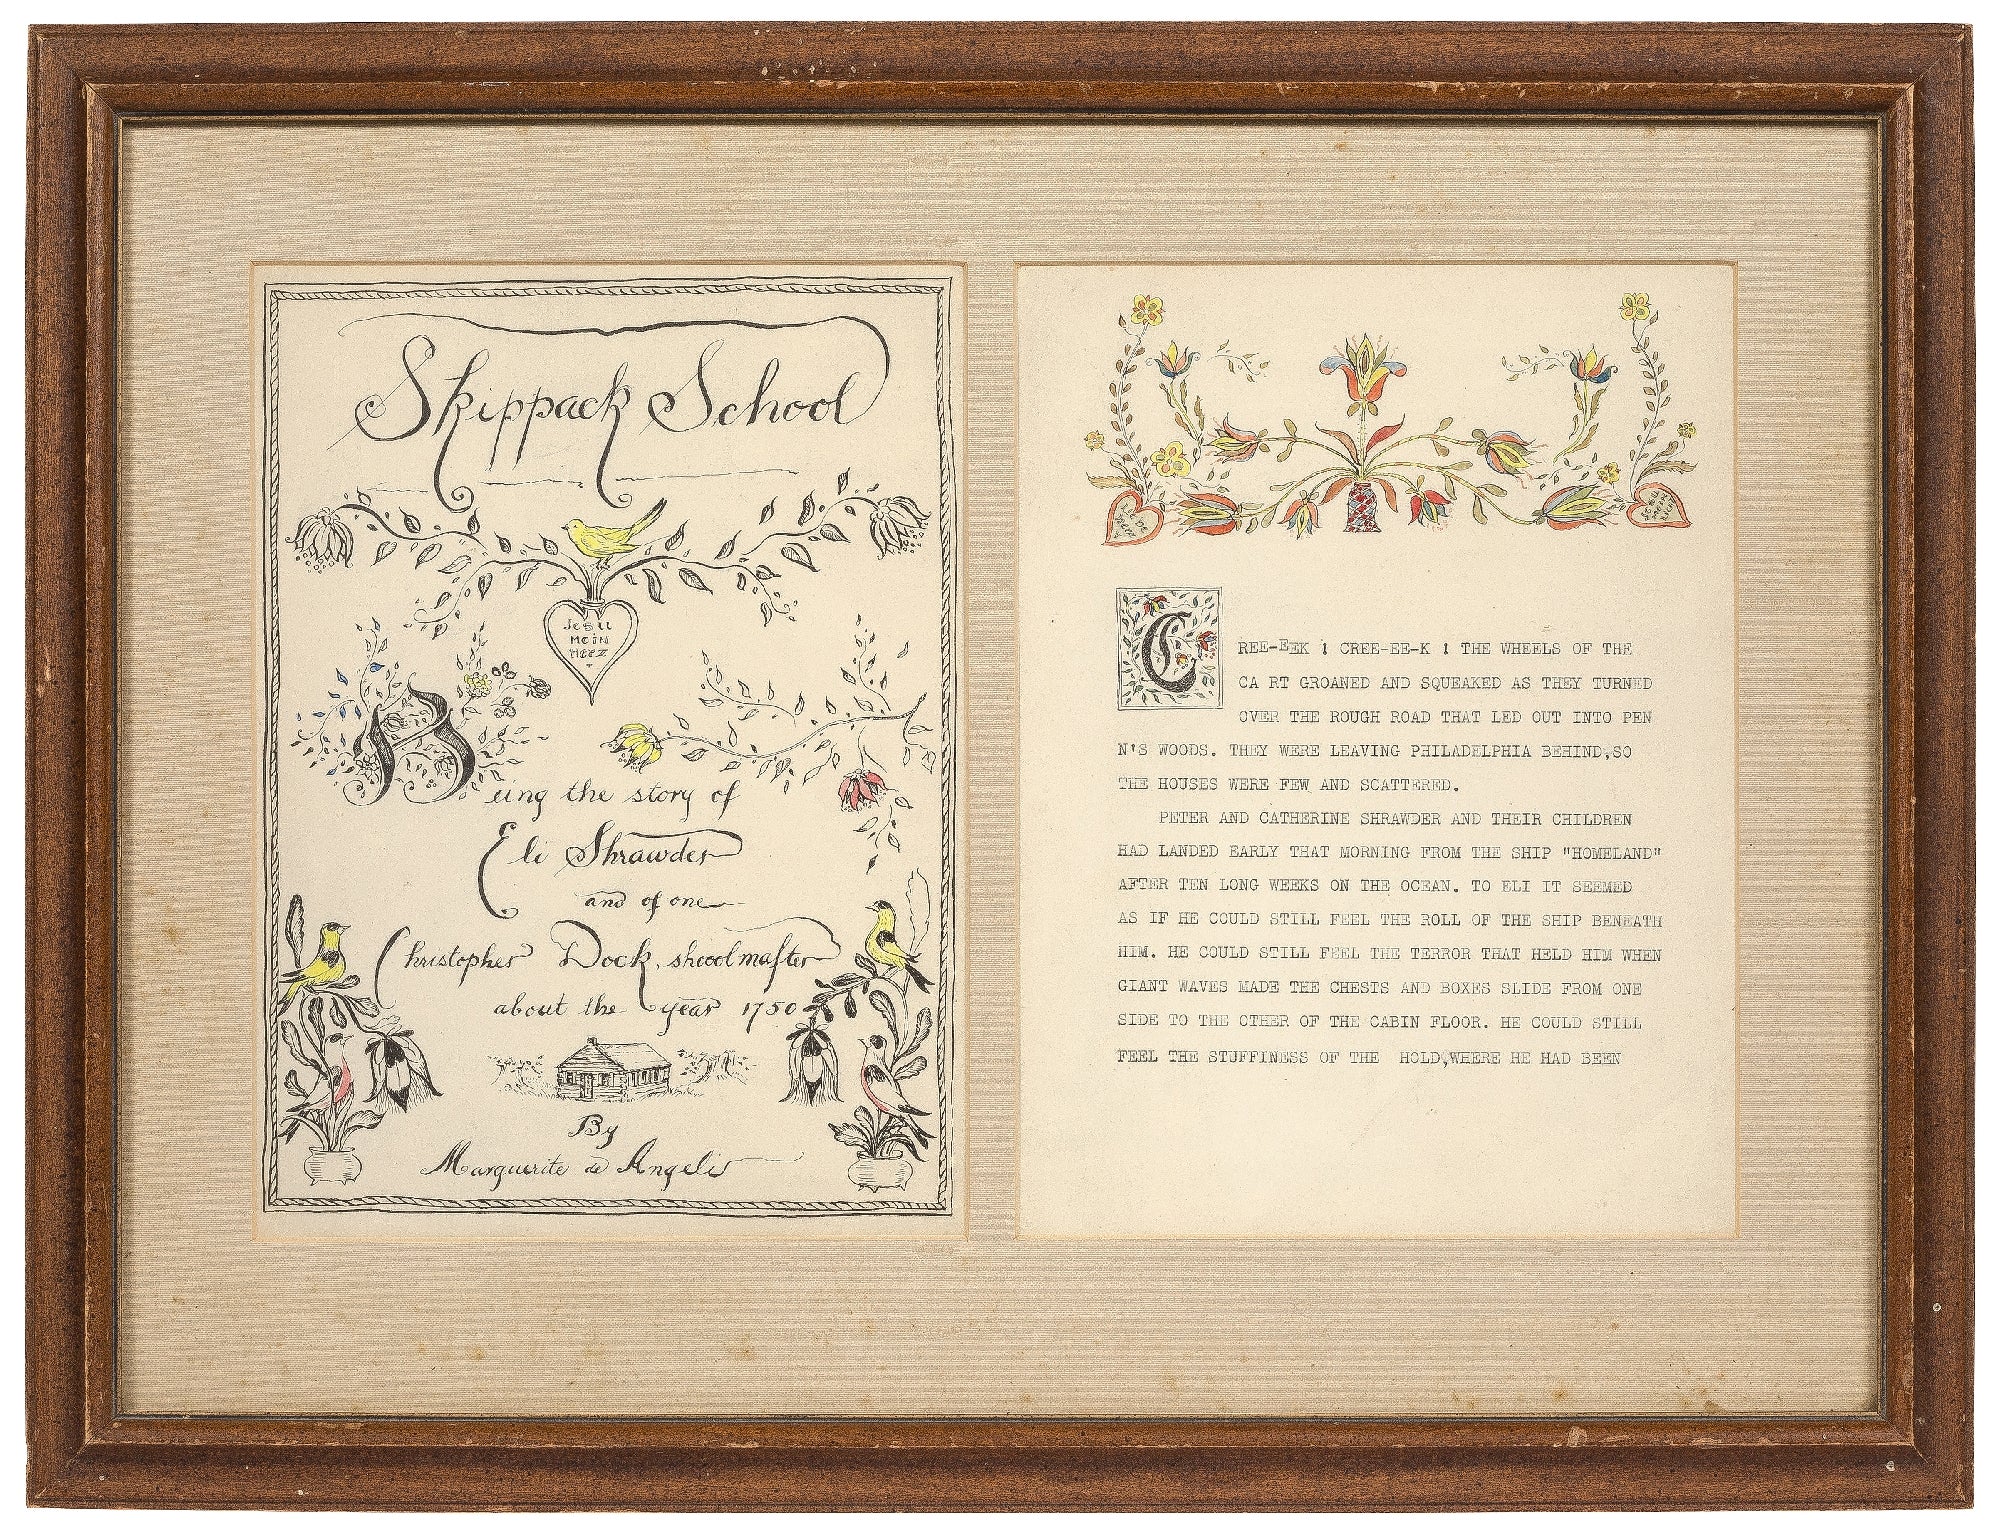 Skippack School
Jesu
mein
Herz
Being the story of
Eli Shrawder
and of one
Christopher Dock, shcoolmaſter
about the year 1750
By
Marguerite de Angeli
Jesu
mein
CREE-EEK ! CREE-EE-K ! THE WHEELS OF THE
CA RT GROANED AND SQUEAKED AS THEY TURNED
OVER THE ROUGH ROAD THAT LED OUT INTO PEN
N'S WOODS. THEY WERE LEAVING PHILADELPHIA BEHIND,SO
THE HOUSES WERE FEW AND SCATTERED.
PETER AND CATHERINE SHRAWDER AND THEIR CHILDREN
HAD LANDED EARLY THAT MORNING FROM THE SHIP "HOMELAND"
AFTER TEN LONG WEEKS ON THE OCEAN. TO ELI IT SEEMED
AS IF HE COULD STILL FEEL THE ROLL OF THE SHIP BENEATH
HIM. HE COULD STILL FEEL THE TERROR THAT HELD HIM WHEN
GIANT WAVES MADE THE CHESTS AND BOXES SLIDE FROM ONE
SIDE TO THE OTHER OF THE CABIN FLOOR. HE COULD STILL
FEEL THE STUFFINESS OF THE HOLD,WHERE HE HAD BEEN